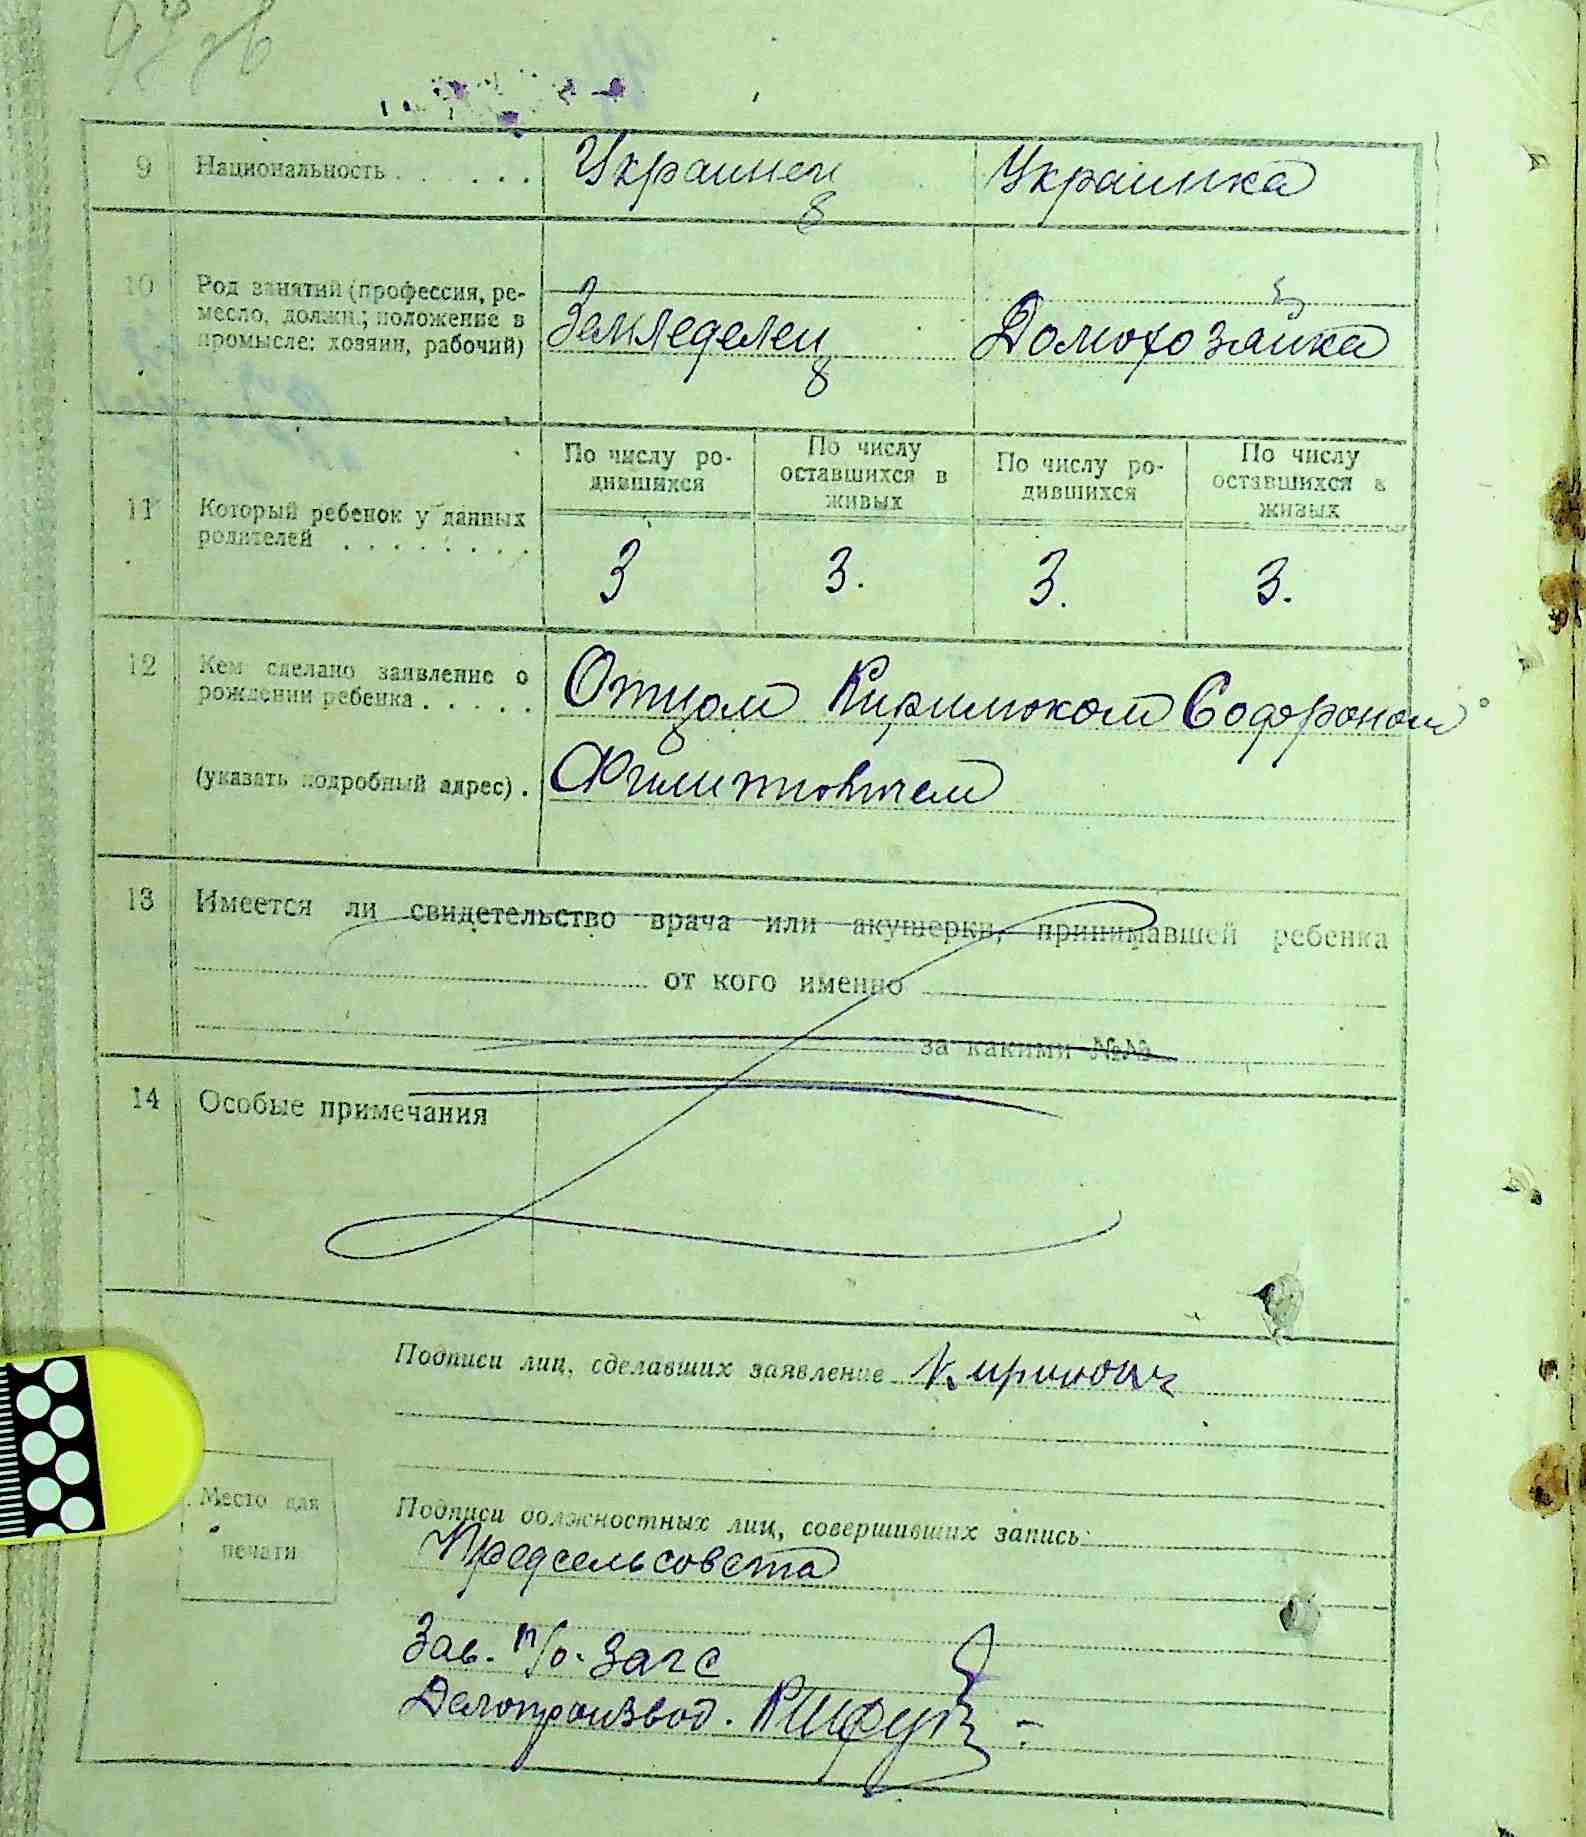 9 Национальность . . . . . . Украинец Украинка
10 Род занятий (профессия, ре-
месло, должн.; положение в
промысле: хозяин, рабочий) Земледелец Домохозайка
По числу ро-
дившихся
По числу
оставшихся в
живых
По числу ро-
дившихся
По числу
оставшихся в
живых
11 Который ребенок у данных
родителей . . . . . . . .
3 3. 3. 3.
12 Кем сделано заявление о
рождении ребенка . . . . . Отцом Киримоком Содороном
(указать подробный адрес) . Филиповичем
13 Имеется ли свидетельство врача или акушерки, принимавшей ребенка
от кого именно
за какими №№
14 Особые примечания
Подписи лиц, сделавших заявление
Место для
печати
Подписи должностных лиц, совершивших запись:
Председсовета
Зав. п/о. Загс
Делопроизвод.